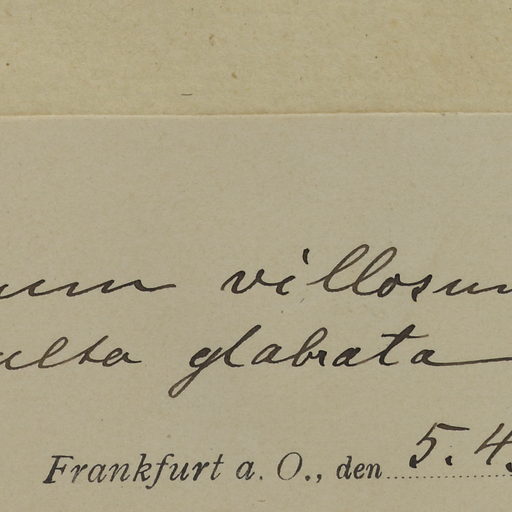 um villosum
ulta glabrata
Frankfurt a. O., den 5. 4.